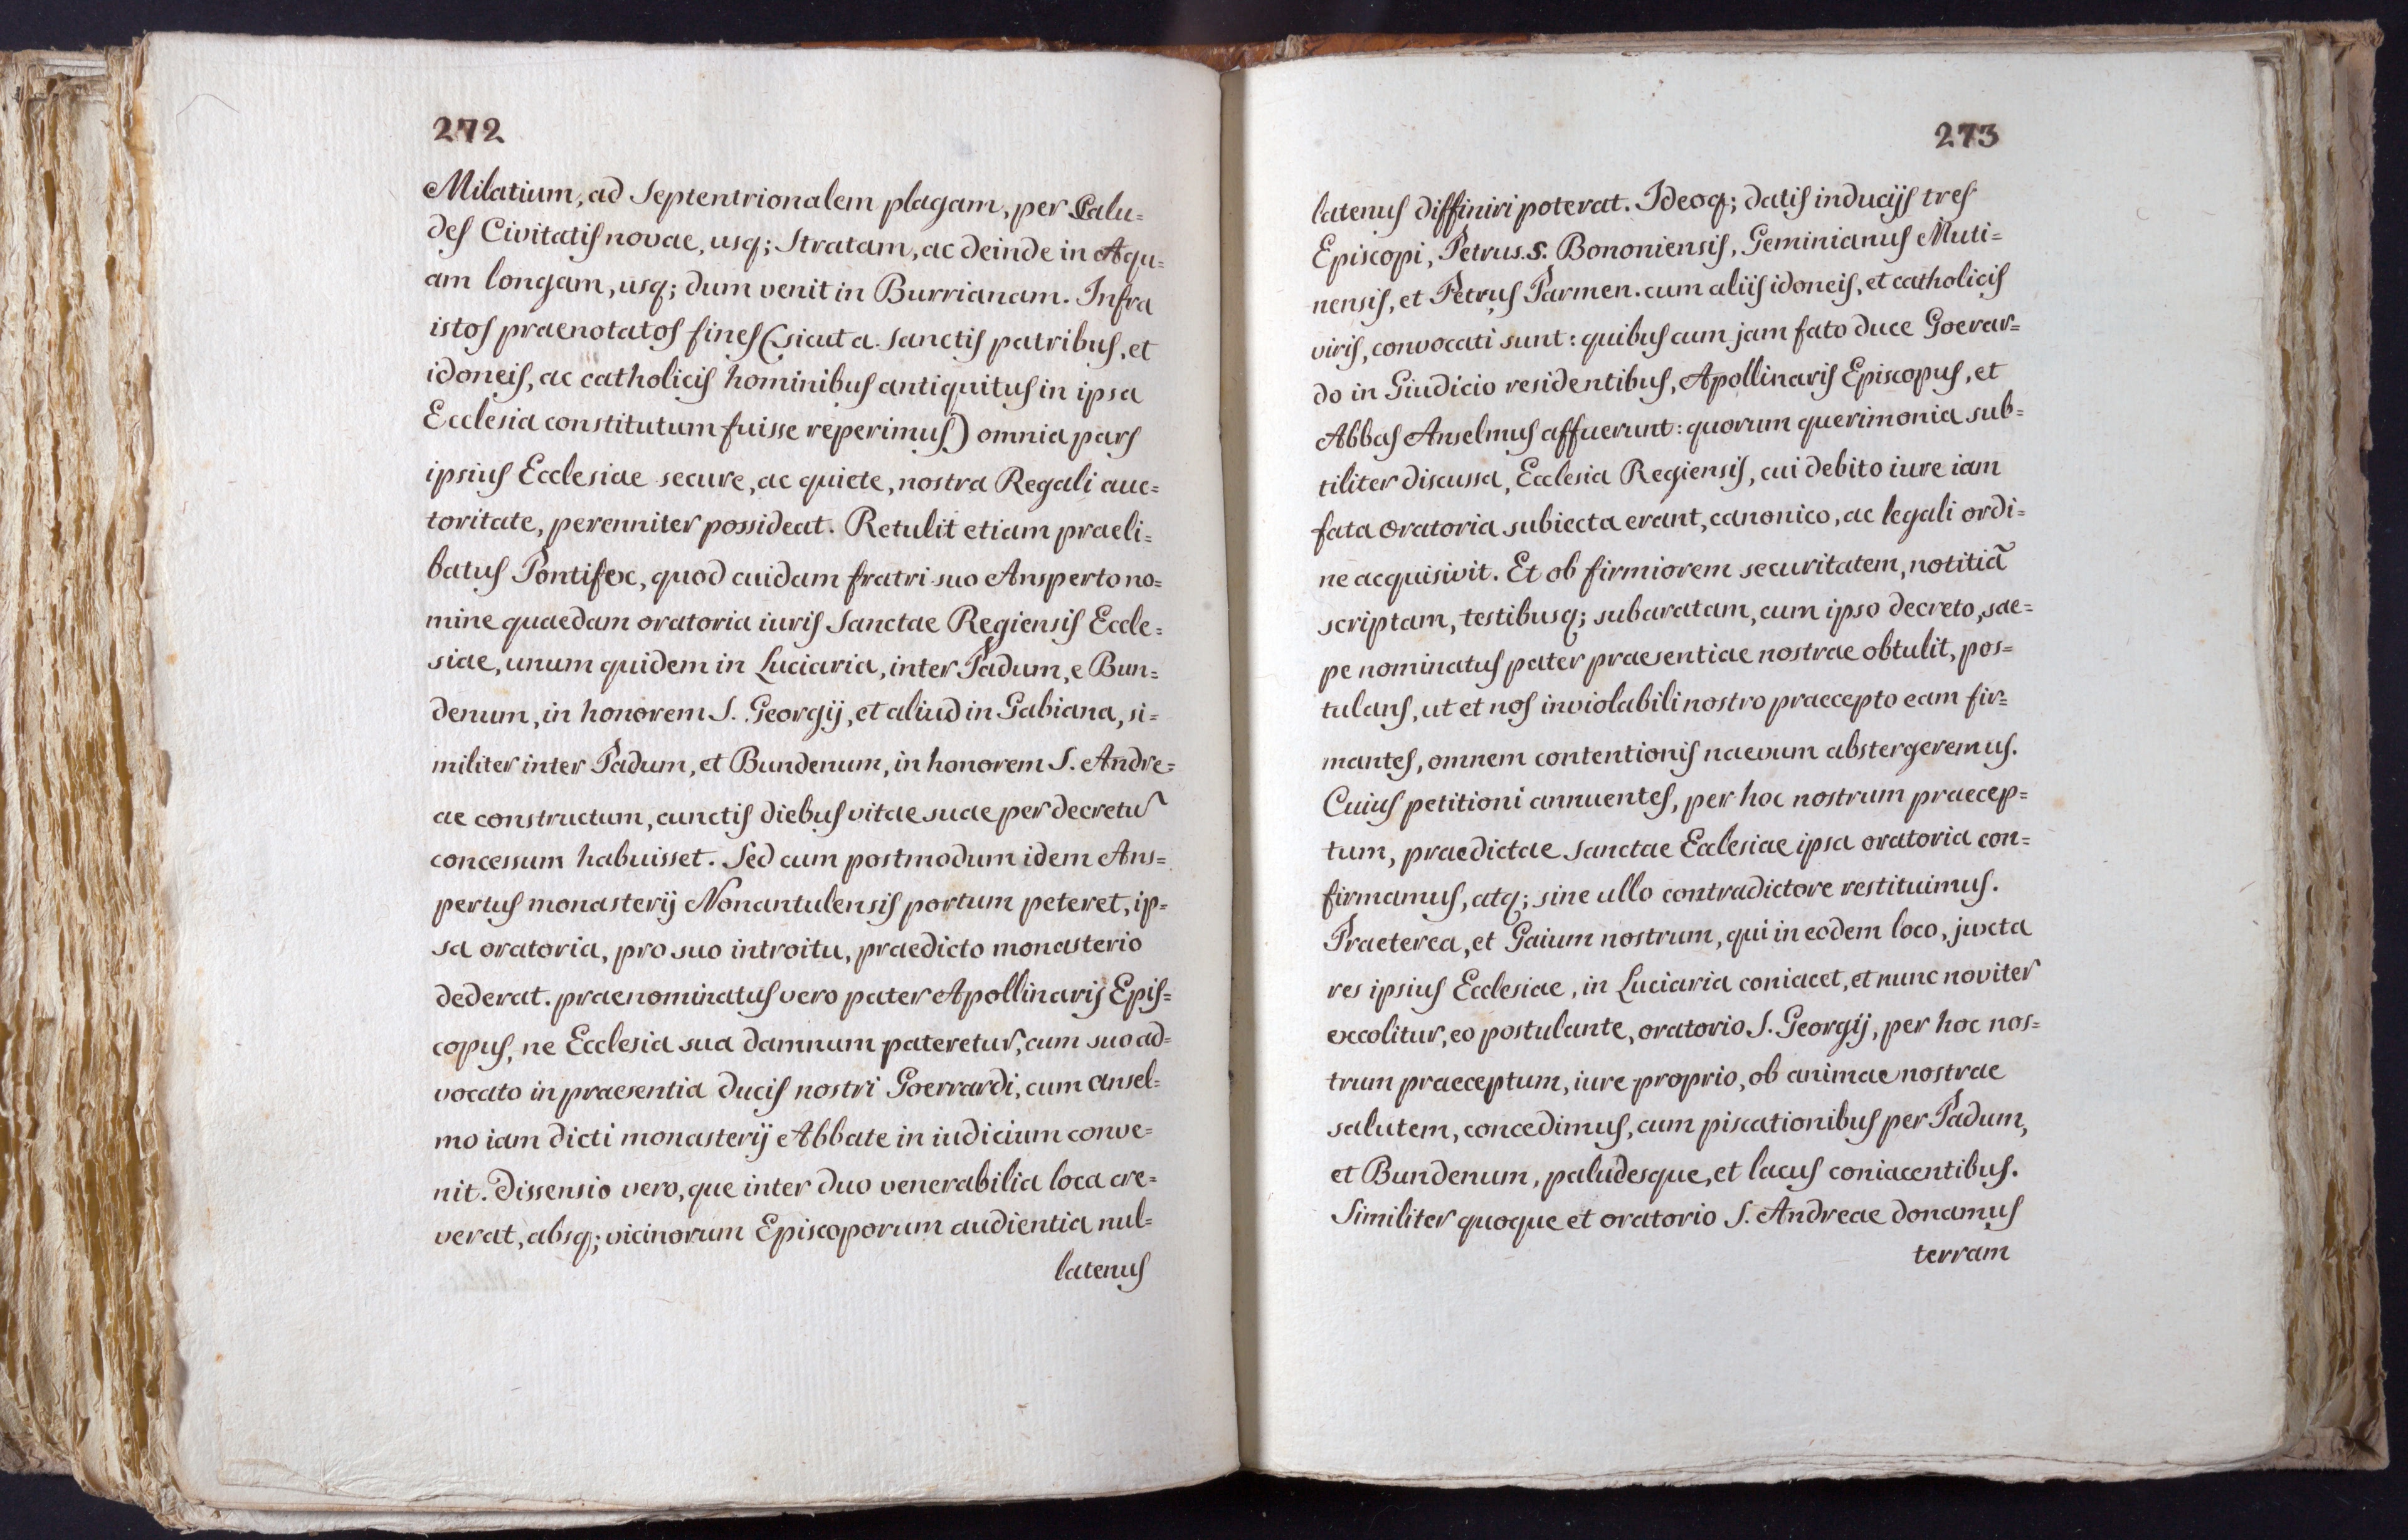 272
Milatium, ad Septentrionalem plagam, per Palu=
des Civitatis novae, usq; Stratam, ac deinde in Aqu=
am longam, usq; dum venit in Burrianam. Infra
istos praenotatos fines (sicut a sanctis patribus, et
idoneis, ac catholicis hominibus antiquitus in ipsa
Ecclesia constitutum fuisse reperimus) omnia pars
ipsius Ecclesiae secure, ac quiete, nostra Regali auc=
toritate, perenniter possideat. Retulit etiam praeli=
batus Pontifex, quod cuidam fratri suo Ansperto no=
mine quaedam oratoria iuris Sanctae Regiensis Eccle=
siae, unum quidem in Luciaria, inter Padum, e Bun=
denum, in honorem S. Georgij, et aliud in Gabiana, si=
militer inter Padum, et Bundenum, in honorem S. Andre=
ae constructum, cunctis diebus vitae suae per decretũ
concessum habuisset. Sed cum postmodum idem Ans=
pertus monasterij Nonantulensis portum peteret, ip=
sa oratoria, pro suo introitu, praedicto monasterio
dederat. praenominatus vero pater Apollinaris Epis=
copus, ne Ecclesia sua damnum pateretur, cum suo ad=
vocato in praesentia ducis nostri Goerrardi, cum ansel=
mo iam dicti monasterij Abbate in iudicium conve=
nit. Dissensio vero, que inter duo venerabilia loca cre=
verat, absq; vicinorum Episcoporum audientia nul=
latenus
273
latenus diffiniri poterat. Ideoq; datis inducijs tres
Episcopi, Petrus .S. Bononiensis, Geminianus Muti=
nensis, et Petrus Parmen. cum aliis idoneis, et catholicis
viris, convocati sunt: quibus cum jam fato duce Goerar=
do in Giudicio residentibus, Apollinaris Episcopus, et
Abbas Anselmus affuerunt: quorum querimonia sub=
tiliter discussa, Ecclesia Regiensis, cui debito iure iam
fata oratoria subiecta erant, canonico, ac legali ordi=
ne acquisivit. Et ob firmiorem securitatem, notitiã
scriptam, testibusq; subaratam, cum ipso decreto, sae=
pe nominatus pater praesentiae nostrae obtulit, pos=
tulans, ut et nos inviolabili nostro praecepto eam fir=
mantes, omnem contentionis naevum abstergeremus.
Cuius petitioni annuentes, per hoc nostrum praecep=
tum, praedictae sanctae Ecclesiae ipsa oratoria con=
firmamus, atq; sine ullo contradictore restituimus.
Praeterea, et Gaium nostrum, qui in eodem loco, juxta
res ipsius Ecclesiae, in Luciaria coniacet, et nunc noviter
excolitur, eo postulante, oratorio S. Georgij, per hoc nos=
trum praeceptum, iure proprio, ob animae nostrae
salutem, concedimus, cum piscationibus per Padum,
et Bundenum, paludesque, et lacus coniacentibus.
Similiter quoque et oratorio S. Andreae donamus
terram